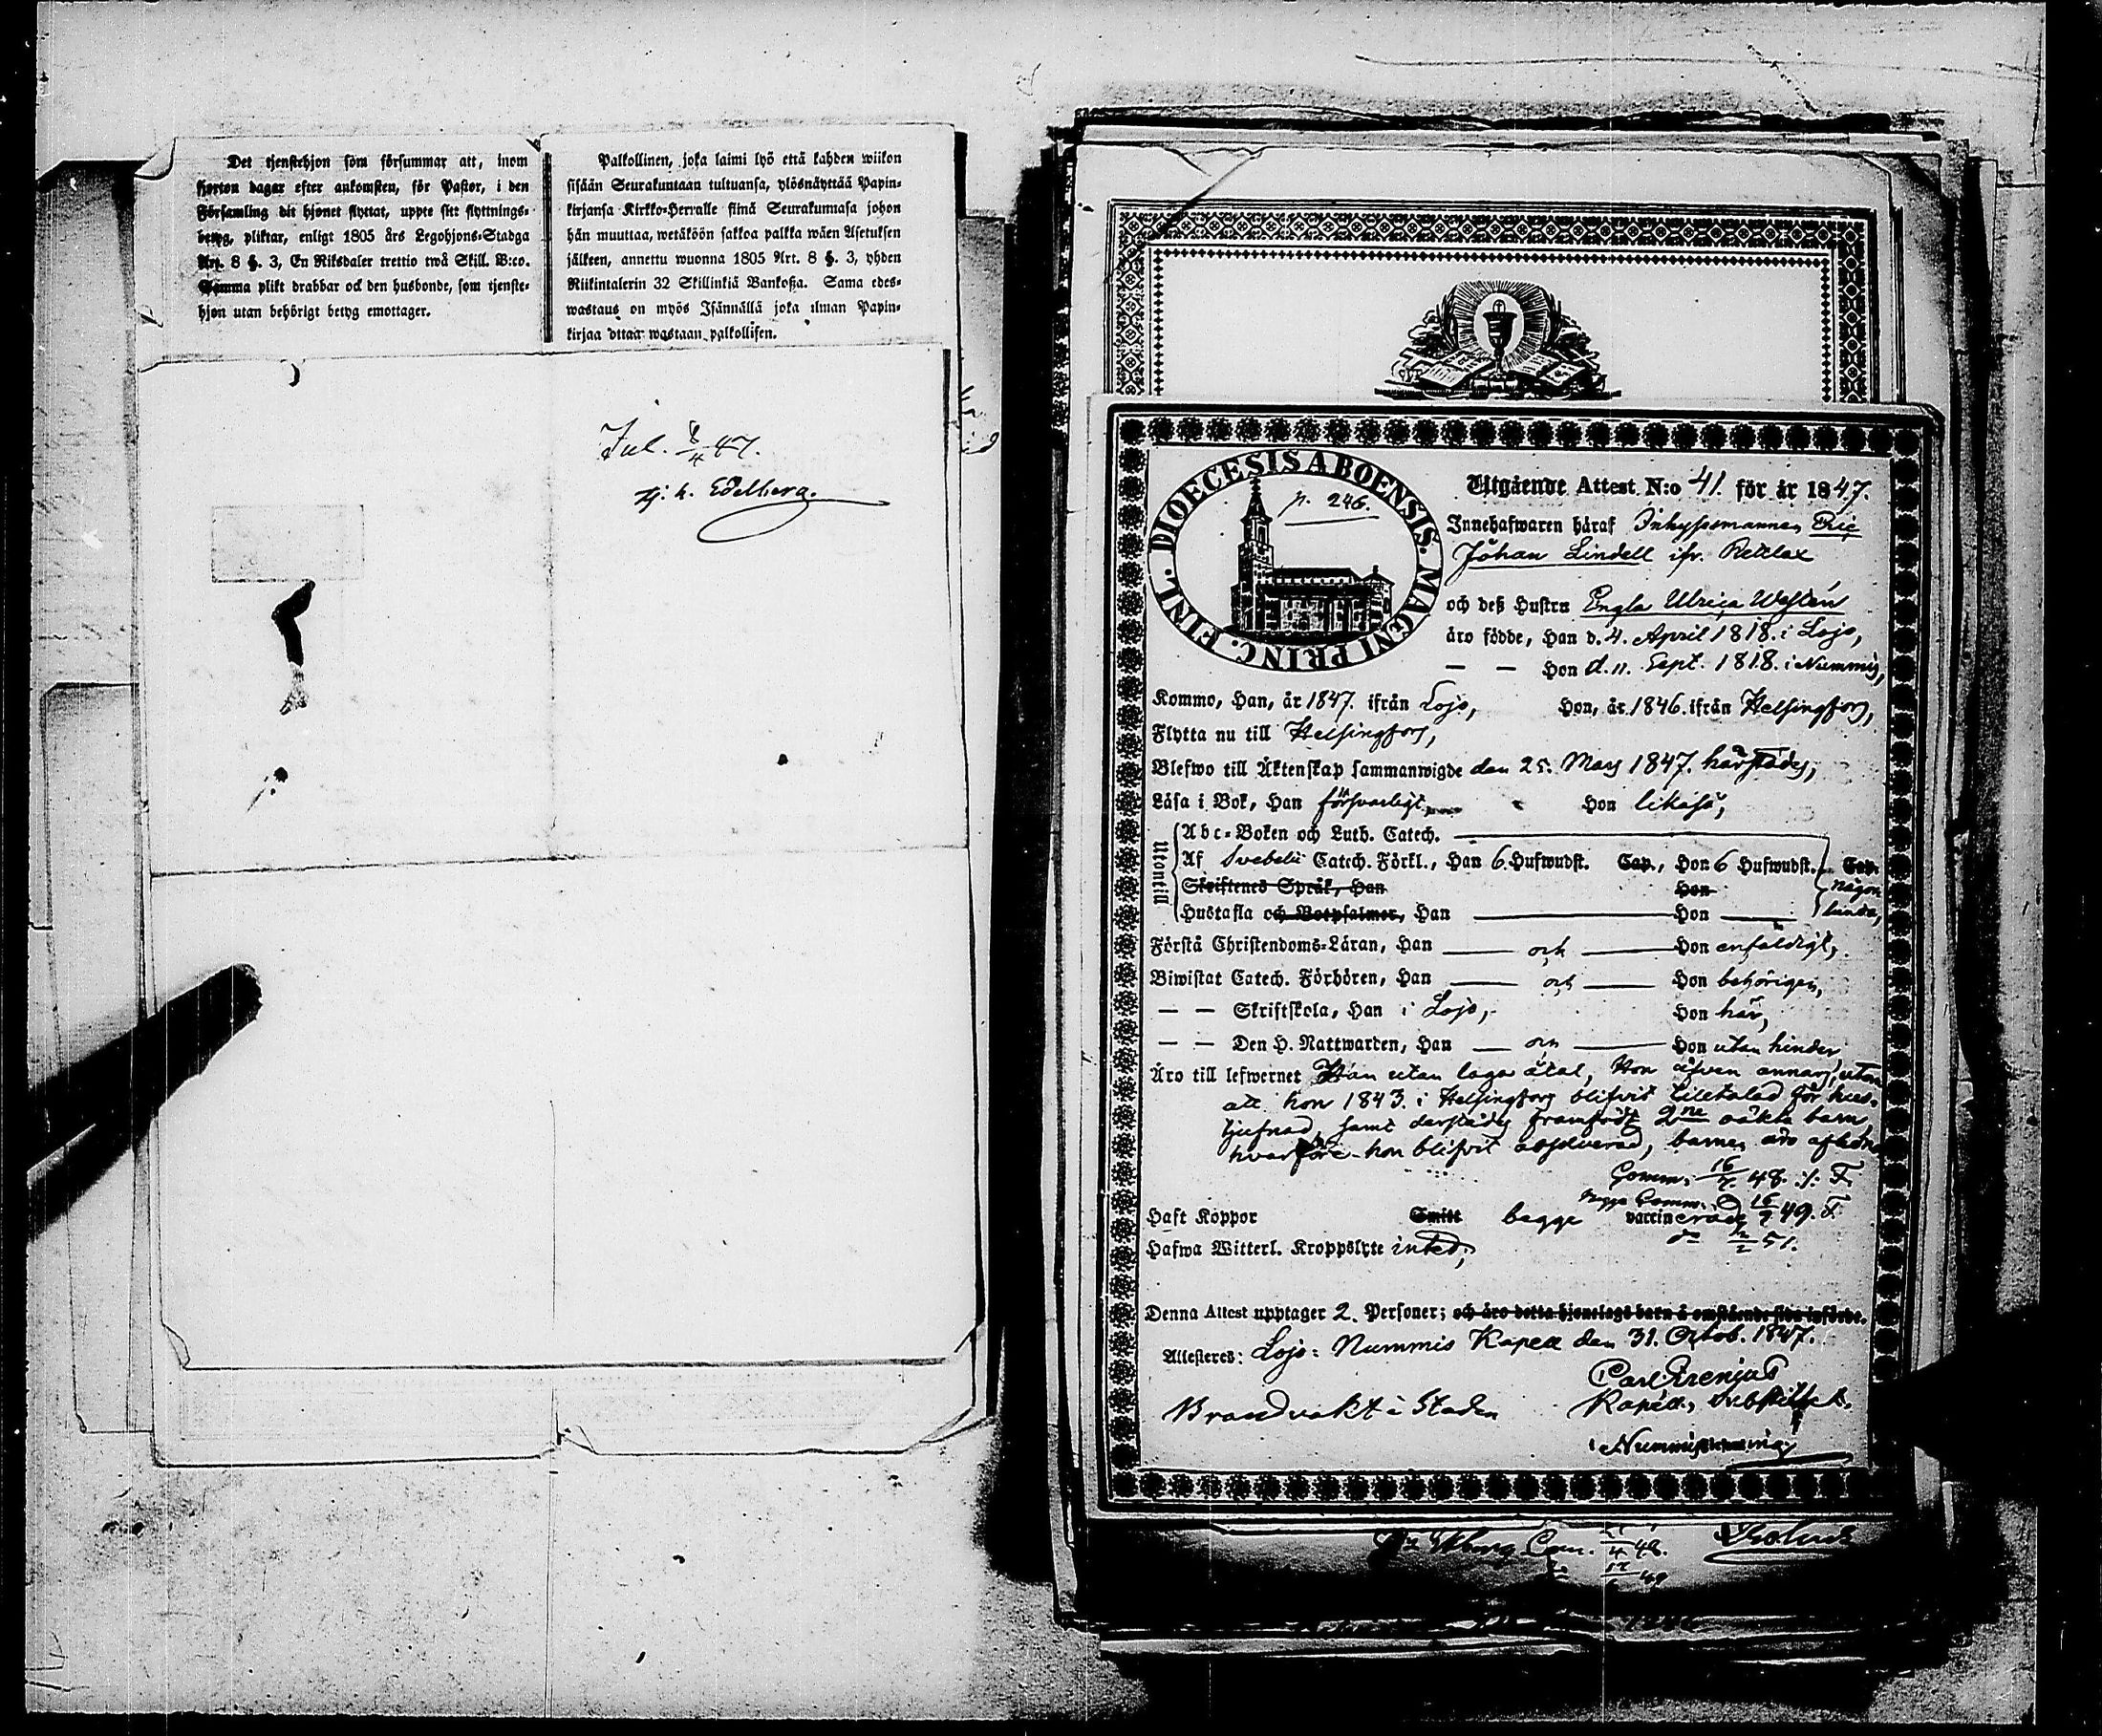 Det tjenstehjon som försummar att, inom
fjorton dagar efter ankomsten, för Pastor, i den
Församling dit hjonet flyttat, uppte sitt flyttnings-
betyg, pliktar, enligt 1805 års Legohjons-Stadga
Art. 8 §. 3, En Riksdaler trettio twå Skill. B:co.
Samma plikt drabbar ock den husbonde, som tjenste-
hjon utan behörigt betyg emottager.
Palkollinen, joka laimi lyö että kahden wiikon
sisään Seurakuntaan tultuansa, ylösnäyttää Papin-
kirjansa Kirkko-Herralle siinä Seurakunnasa johon
hän muuttaa, wetäköön sakkoa palkka wäen Asetuksen
jälkeen, annettu wuonna 1805 Art. 8 §. 3, yhden
Riikintalerin 32 Skillinkiä Bankoßa. Sama edes-
wastaus on myös Isännällä joka ilman Papin-
kirjaa ottaa wastaan palkollisen.
Jul. 8/4 47.
Edelberg.
DIOECESIS ABOENSIS. MAGNI PRINC. FINL.
p. 246.
Utgående Attest N:o 41. för år 1847.
Innehafwaren häraf Inhysesmannen Eric
Johan Lindell ifr. Retlax
och deß Hustru Engla Ulrica Westén
äro födde, Han d. 4. April 1818. i Lojo,
— — Hon d. 11. Sept. 1818. i Nummis,
Kommo, Han, år 1847. ifrån Lojo, Hon, år 1846. ifrån Helsingfors,
Flytta nu till Helsingfors,
Blefwo till Äktenskap sammanwigde den 25. Mars 1847. härstädes,
Läsa i Bok, Han försvarligt, Hon likaså,
Utantill
Abc-Boken och Luth. Catech.
Af Svebelii Catech. Förkl., Han 6 Hufwudst. Cap., Hon 6 Hufwudst. Cap.
Skriftenes Språk, Han Hon
någon
Hustafla och Botpsalmer, Han — Hon —
lunda,
Förstå Christendoms-Läran, Han — och — Hon enfaldigt,
Biwistat Catech. Förhören, Han — och — Hon behörigen,
— — Skriftskola, Han i Lojo, Hon här,
— — Den H. Nattwarden, Han — och — Hon utan hinder,
Äro till lefwernet Han utan laga åtal, Hon äfven annars, utom
att hon 1843. i Helsingfors blifvit tilltalad för hus-
tjufnad, samt derstädes framfödt 2ne oäkta barn,
hvarföre hon blifvit absolverad, barnen äro aflidne
Comm. 16/7 48. F.
Begge Comm. 16/9 49. F.
Haft Koppor Smitt begge vaccinerade
d:o 12/2 51.
Hafwa Witterl. Kroppslyte inted;
Denna Attest upptager 2. Personer; och äro detta hjonelags barn å omstående sida införde.
Attesteras: Lojo: Nummis Kapell den 31. Octob. 1847.
Carl Grenius
Kapell.
Brandvakt i Staden
Nummis
Com. 4 48.